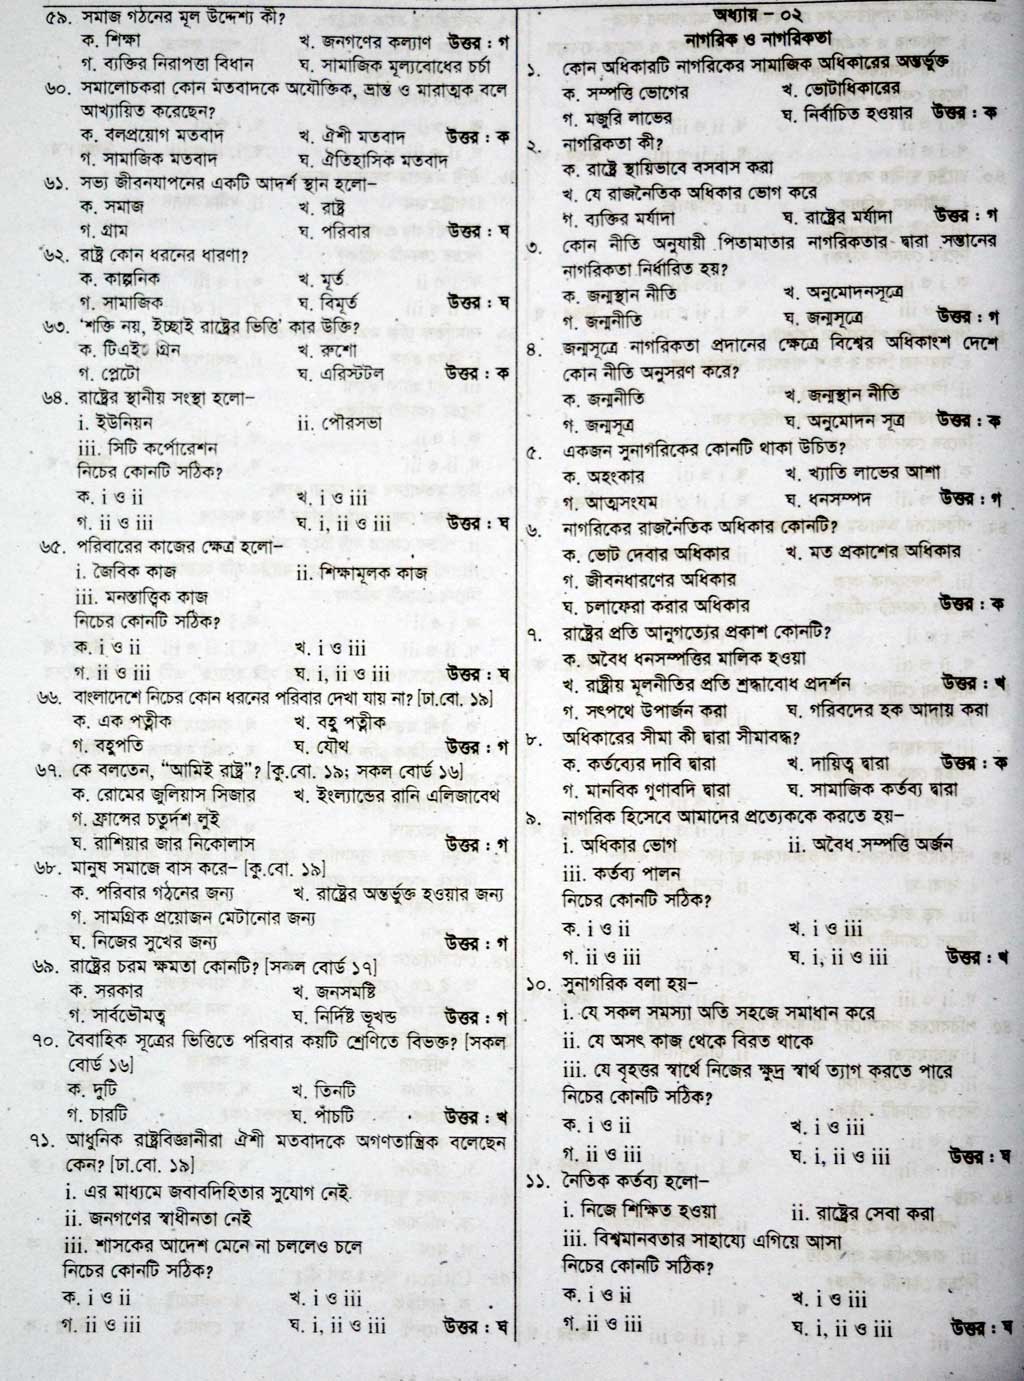 ৫৯. সমাজ গঠনের মূল উদ্দেশ্য কী?
ক. শিক্ষা খ. জনগণের কল্যাণ উত্তর : গ
গ. ব্যক্তির নিরাপত্তা বিধান ঘ. সামাজিক মূল্যবোধের চর্চা
৬০. সমালোচকরা কোন মতবাদকে অযৌক্তিক, ভ্রান্ত ও মারাত্মক বলে
আখ্যায়িত করেছেন?
ক. বলপ্রয়োগ মতবাদ খ. ঐশী মতবাদ উত্তর : ক
গ. সামাজিক মতবাদ ঘ. ঐতিহাসিক মতবাদ
৬১. সভ্য জীবনযাপনের একটি আদর্শ স্থান হলো–
ক. সমাজ খ. রাষ্ট্র
গ. গ্রাম ঘ. পরিবার উত্তর : ঘ
৬২. রাষ্ট্র কোন ধরনের ধারণা?
ক. কাল্পনিক খ. মূর্ত
গ. সামাজিক ঘ. বিমূর্ত উত্তর : ঘ
৬৩. ‘শক্তি নয়, ইচ্ছাই রাষ্ট্রের ভিত্তি’ কার উক্তি?
ক. টিএইচ গ্রিন খ. রুশো
গ. প্লেটো ঘ. এরিস্টটল উত্তর : ক
৬৪. রাষ্ট্রের স্থানীয় সংস্থা হলো–
i. ইউনিয়ন ii. পৌরসভা
iii. সিটি কর্পোরেশন
নিচের কোনটি সঠিক?
ক. i ও ii খ. i ও iii
গ. ii ও iii ঘ. i, ii ও iii উত্তর : ঘ
৬৫. পরিবারের কাজের ক্ষেত্র হলো–
i. জৈবিক কাজ ii. শিক্ষামূলক কাজ
iii. মনস্তাত্ত্বিক কাজ
নিচের কোনটি সঠিক?
ক. i ও ii খ. i ও iii
গ. ii ও iii ঘ. i, ii ও iii উত্তর : ঘ
৬৬. বাংলাদেশে নিচের কোন ধরনের পরিবার দেখা যায় না? [ঢা.বো. ১৯]
ক. এক পত্নীক খ. বহু পত্নীক
গ. বহুপতি ঘ. যৌথ উত্তর : গ
৬৭. কে বলতেন, “আমিই রাষ্ট্র”? [কু.বো. ১৯; সকল বোর্ড ১৬]
ক. রোমের জুলিয়াস সিজার খ. ইংল্যান্ডের রানি এলিজাবেথ
গ. ফ্রান্সের চতুর্দশ লুই
ঘ. রাশিয়ার জার নিকোলাস উত্তর : গ
৬৮. মানুষ সমাজে বাস করে– [কু.বো. ১৯]
ক. পরিবার গঠনের জন্য খ. রাষ্ট্রের অন্তর্ভুক্ত হওয়ার জন্য
গ. সামগ্রিক প্রয়োজন মেটানোর জন্য
ঘ. নিজের সুখের জন্য উত্তর : গ
৬৯. রাষ্ট্রের চরম ক্ষমতা কোনটি? [সকল বোর্ড ১৭]
ক. সরকার খ. জনসমষ্টি
গ. সার্বভৌমত্ব ঘ. নির্দিষ্ট ভূখন্ড উত্তর : গ
৭০. বৈবাহিক সূত্রের ভিত্তিতে পরিবার কয়টি শ্রেণিতে বিভক্ত? [সকল
বোর্ড ১৬]
ক. দুটি খ. তিনটি
গ. চারটি ঘ. পাঁচটি উত্তর : খ
৭১. আধুনিক রাষ্ট্রবিজ্ঞানীরা ঐশী মতবাদকে অগণতান্ত্রিক বলেছেন
কেন? [ঢা.বো. ১৯]
i. এর মাধ্যমে জবাবদিহিতার সুযোগ নেই
ii. জনগণের স্বাধীনতা নেই
iii. শাসকের আদেশ মেনে না চললেও চলে
নিচের কোনটি সঠিক?
ক. i ও ii খ. i ও iii
গ. ii ও iii ঘ. i, ii ও iii উত্তর : ঘ
অধ্যায় – ০২
নাগরিক ও নাগরিকতা
১. কোন অধিকারটি নাগরিকের সামাজিক অধিকারের অন্তর্ভুক্ত
ক. সম্পত্তি ভোগের খ. ভোটাধিকারের
গ. মজুরি লাভের ঘ. নির্বাচিত হওয়ার উত্তর : ক
২. নাগরিকতা কী?
ক. রাষ্ট্রে স্থায়িভাবে বসবাস করা
খ. যে রাজনৈতিক অধিকার ভোগ করে
গ. ব্যক্তির মর্যাদা ঘ. রাষ্ট্রের মর্যাদা উত্তর : গ
৩. কোন নীতি অনুযায়ী পিতামাতার নাগরিকতার দ্বারা সন্তানের
নাগরিকতা নির্ধারিত হয়?
ক. জন্মস্থান নীতি খ. অনুমোদনসূত্রে
গ. জন্মনীতি ঘ. জন্মসূত্রে উত্তর : গ
৪. জন্মসূত্রে নাগরিকতা প্রদানের ক্ষেত্রে বিশ্বের অধিকাংশ দেশে
কোন নীতি অনুসরণ করে?
ক. জন্মনীতি খ. জন্মস্থান নীতি
গ. জন্মসূত্র ঘ. অনুমোদন সূত্র উত্তর : ক
৫. একজন সুনাগরিকের কোনটি থাকা উচিত?
ক. অহংকার খ. খ্যাতি লাভের আশা
গ. আত্মসংযম ঘ. ধনসম্পদ উত্তর : গ
৬. নাগরিকের রাজনৈতিক অধিকার কোনটি?
ক. ভোট দেবার অধিকার খ. মত প্রকাশের অধিকার
গ. জীবনধারণের অধিকার
ঘ. চলাফেরা করার অধিকার উত্তর : ক
৭. রাষ্ট্রের প্রতি আনুগত্যের প্রকাশ কোনটি?
ক. অবৈধ ধনসম্পত্তির মালিক হওয়া
খ. রাষ্ট্রীয় মূলনীতির প্রতি শ্রদ্ধাবোধ প্রদর্শন উত্তর : খ
গ. সৎপথে উপার্জন করা ঘ. গরিবদের হক আদায় করা
৮. অধিকারের সীমা কী দ্বারা সীমাবদ্ধ?
ক. কর্তব্যের দাবি দ্বারা খ. দায়িত্ব দ্বারা উত্তর : ক
গ. মানবিক গুণাবদি দ্বারা ঘ. সামাজিক কর্তব্য দ্বারা
৯. নাগরিক হিসেবে আমাদের প্রত্যেককে করতে হয়–
i. অধিকার ভোগ ii. অবৈধ সম্পত্তি অর্জন
iii. কর্তব্য পালন
নিচের কোনটি সঠিক?
ক. i ও ii খ. i ও iii
গ. ii ও iii ঘ. i, ii ও iii উত্তর : খ
১০. সুনাগরিক বলা হয়–
i. যে সকল সমস্যা অতি সহজে সমাধান করে
ii. যে অসৎ কাজ থেকে বিরত থাকে
iii. যে বৃহত্তর স্বার্থে নিজের ক্ষুদ্র স্বার্থ ত্যাগ করতে পারে
নিচের কোনটি সঠিক?
ক. i ও ii খ. i ও iii
গ. ii ও iii ঘ. i, ii ও iii উত্তর : ঘ
১১. নৈতিক কর্তব্য হলো–
i. নিজে শিক্ষিত হওয়া ii. রাষ্ট্রের সেবা করা
iii. বিশ্বমানবতার সাহায্যে এগিয়ে আসা
নিচের কোনটি সঠিক?
ক. i ও ii খ. i ও iii
গ. ii ও iii ঘ. i, ii ও iii উত্তর : ঘ